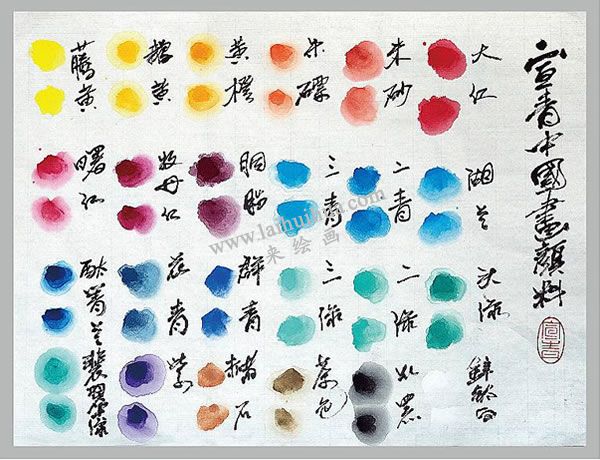 宣青中國畫顏料
大红
朱砂
朱磦
黄橙
鹅黄
藤黄
湖兰
二青
三青
胭脂
牡丹红
曙红
头绿
二绿
三绿
群青
花青
酞菁兰
锌钛白
黑
茶色
赭石
紫
翡翠绿
宣青
www.laihuihua.com
来绘画